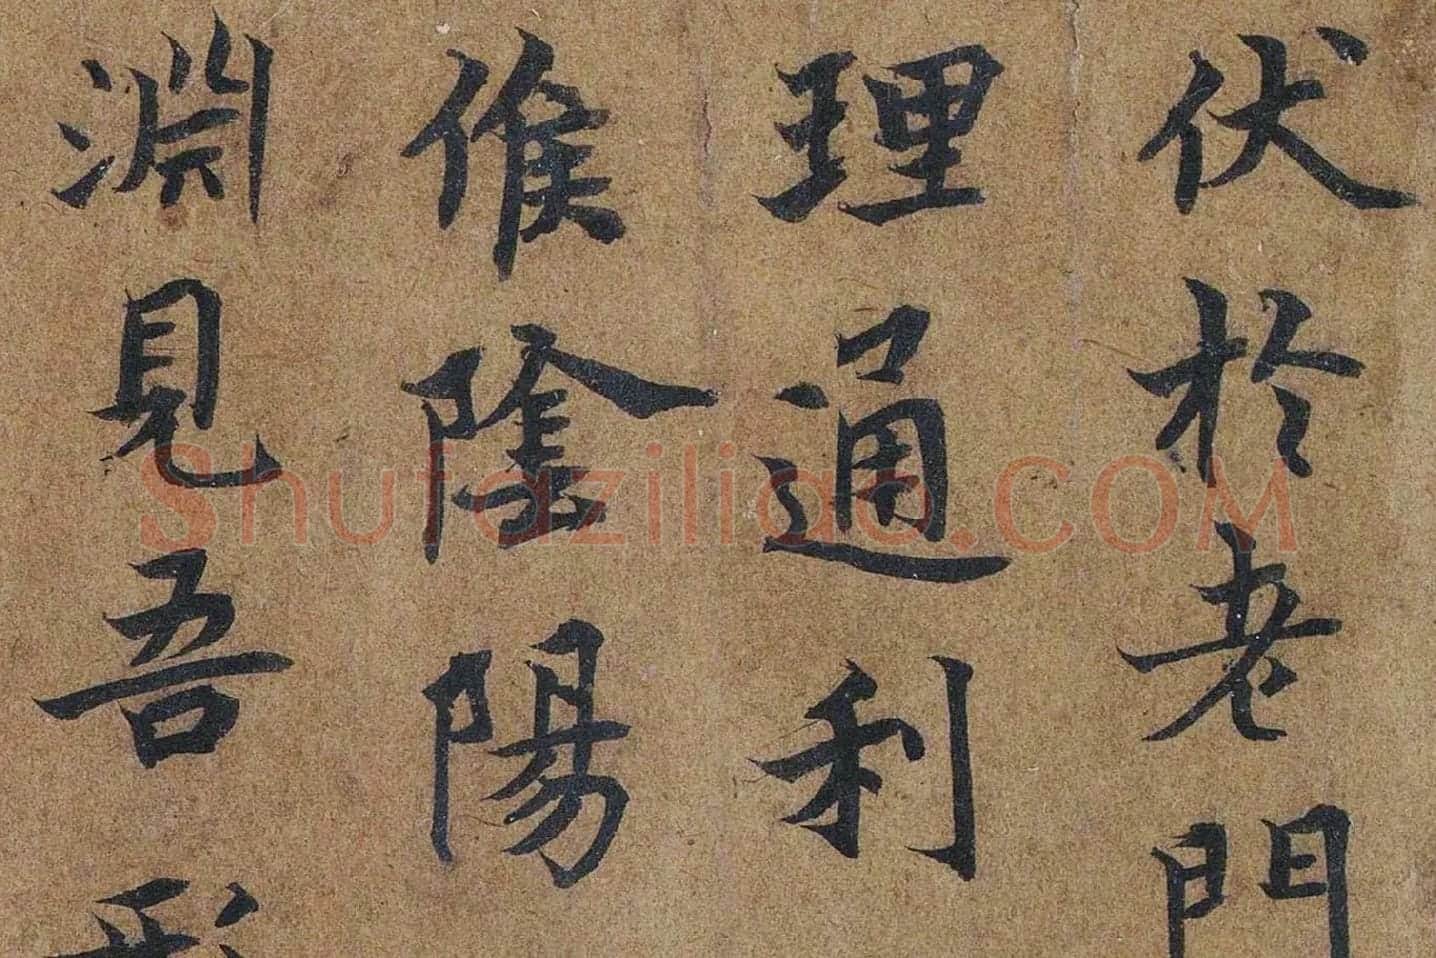 伏於老門
理通利
候陰陽
淵見吾形
Shufaziliao.COM